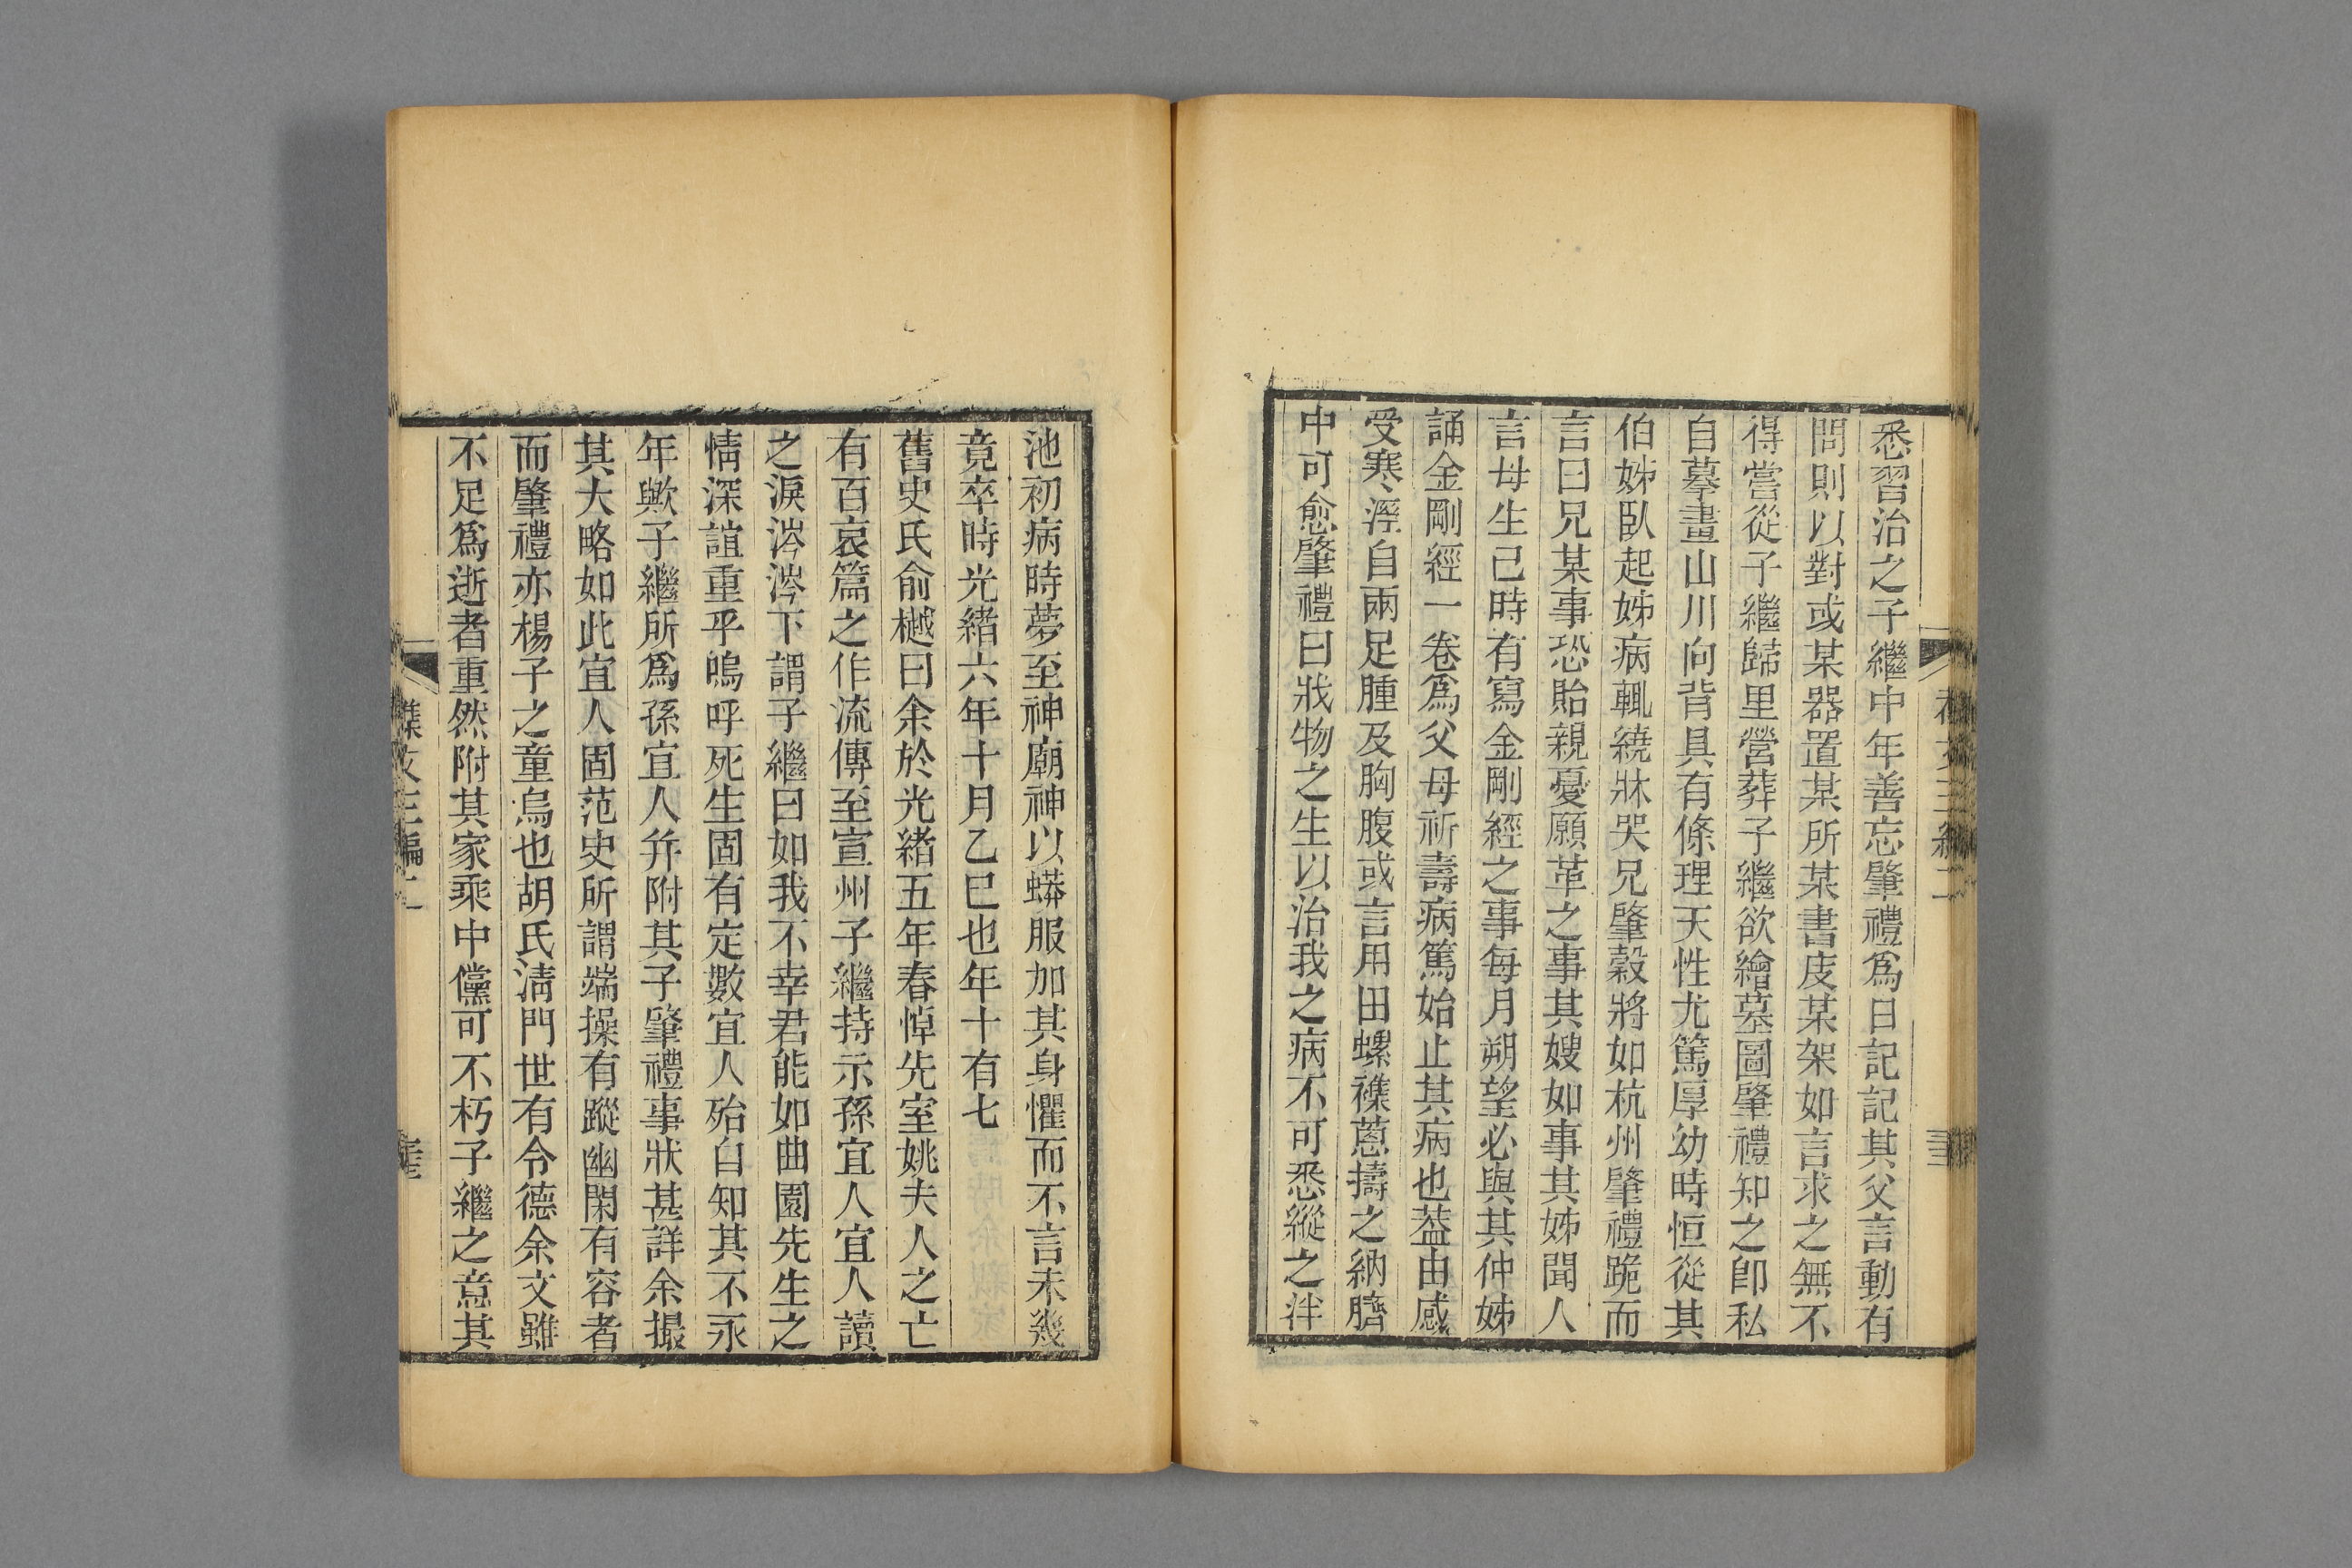 悉習治之子繼中年善忘肇禮爲日記記其父言動有
問則以對或某器置某所某書庋某架如言求之無不
得嘗從子繼歸里營葬子繼欲繪墓圖肇禮知之卽私
自摹畫山川向背具有條理天性尤篤厚幼時恒從其
伯姊臥起姊病輒繞牀哭兄肇榖將如杭州肇禮跪而
言曰兄某事恐貽親憂願革之事其嫂如事其姊聞人
言母生己時有寫金剛經之事每月朔望必與其仲姊
誦金剛經一卷爲父母祈壽病篤始止其病也葢由感
受寒溼自兩足腫及胸腹或言用田螺襍蔥擣之納臍
中可愈肇禮曰戕物之生以治我之病不可悉縱之泮
池初病時夢至神廟神以蟒服加其身懼而不言未幾
竟卒時光緒六年十月乙巳也年十有七
舊史氏俞樾曰余於光緒五年春悼先室姚夫人之亡
有百哀篇之作流傳至宣州子繼持示孫宜人宜人讀
之淚涔涔下謂子繼曰如我不幸君能如曲園先生之
情深誼重乎嗚呼死生固有定數宜人殆自知其不永
年歟子繼所爲孫宜人幷附其子肇禮事狀甚詳余撮
其大略如此宜人固范史所謂端操有蹤幽閑有容者
而肇禮亦楊子之童烏也胡氏淸門世有令德余文雖
不足爲逝者重然附其家乘中儻可不朽子繼之意其
襍文三編二